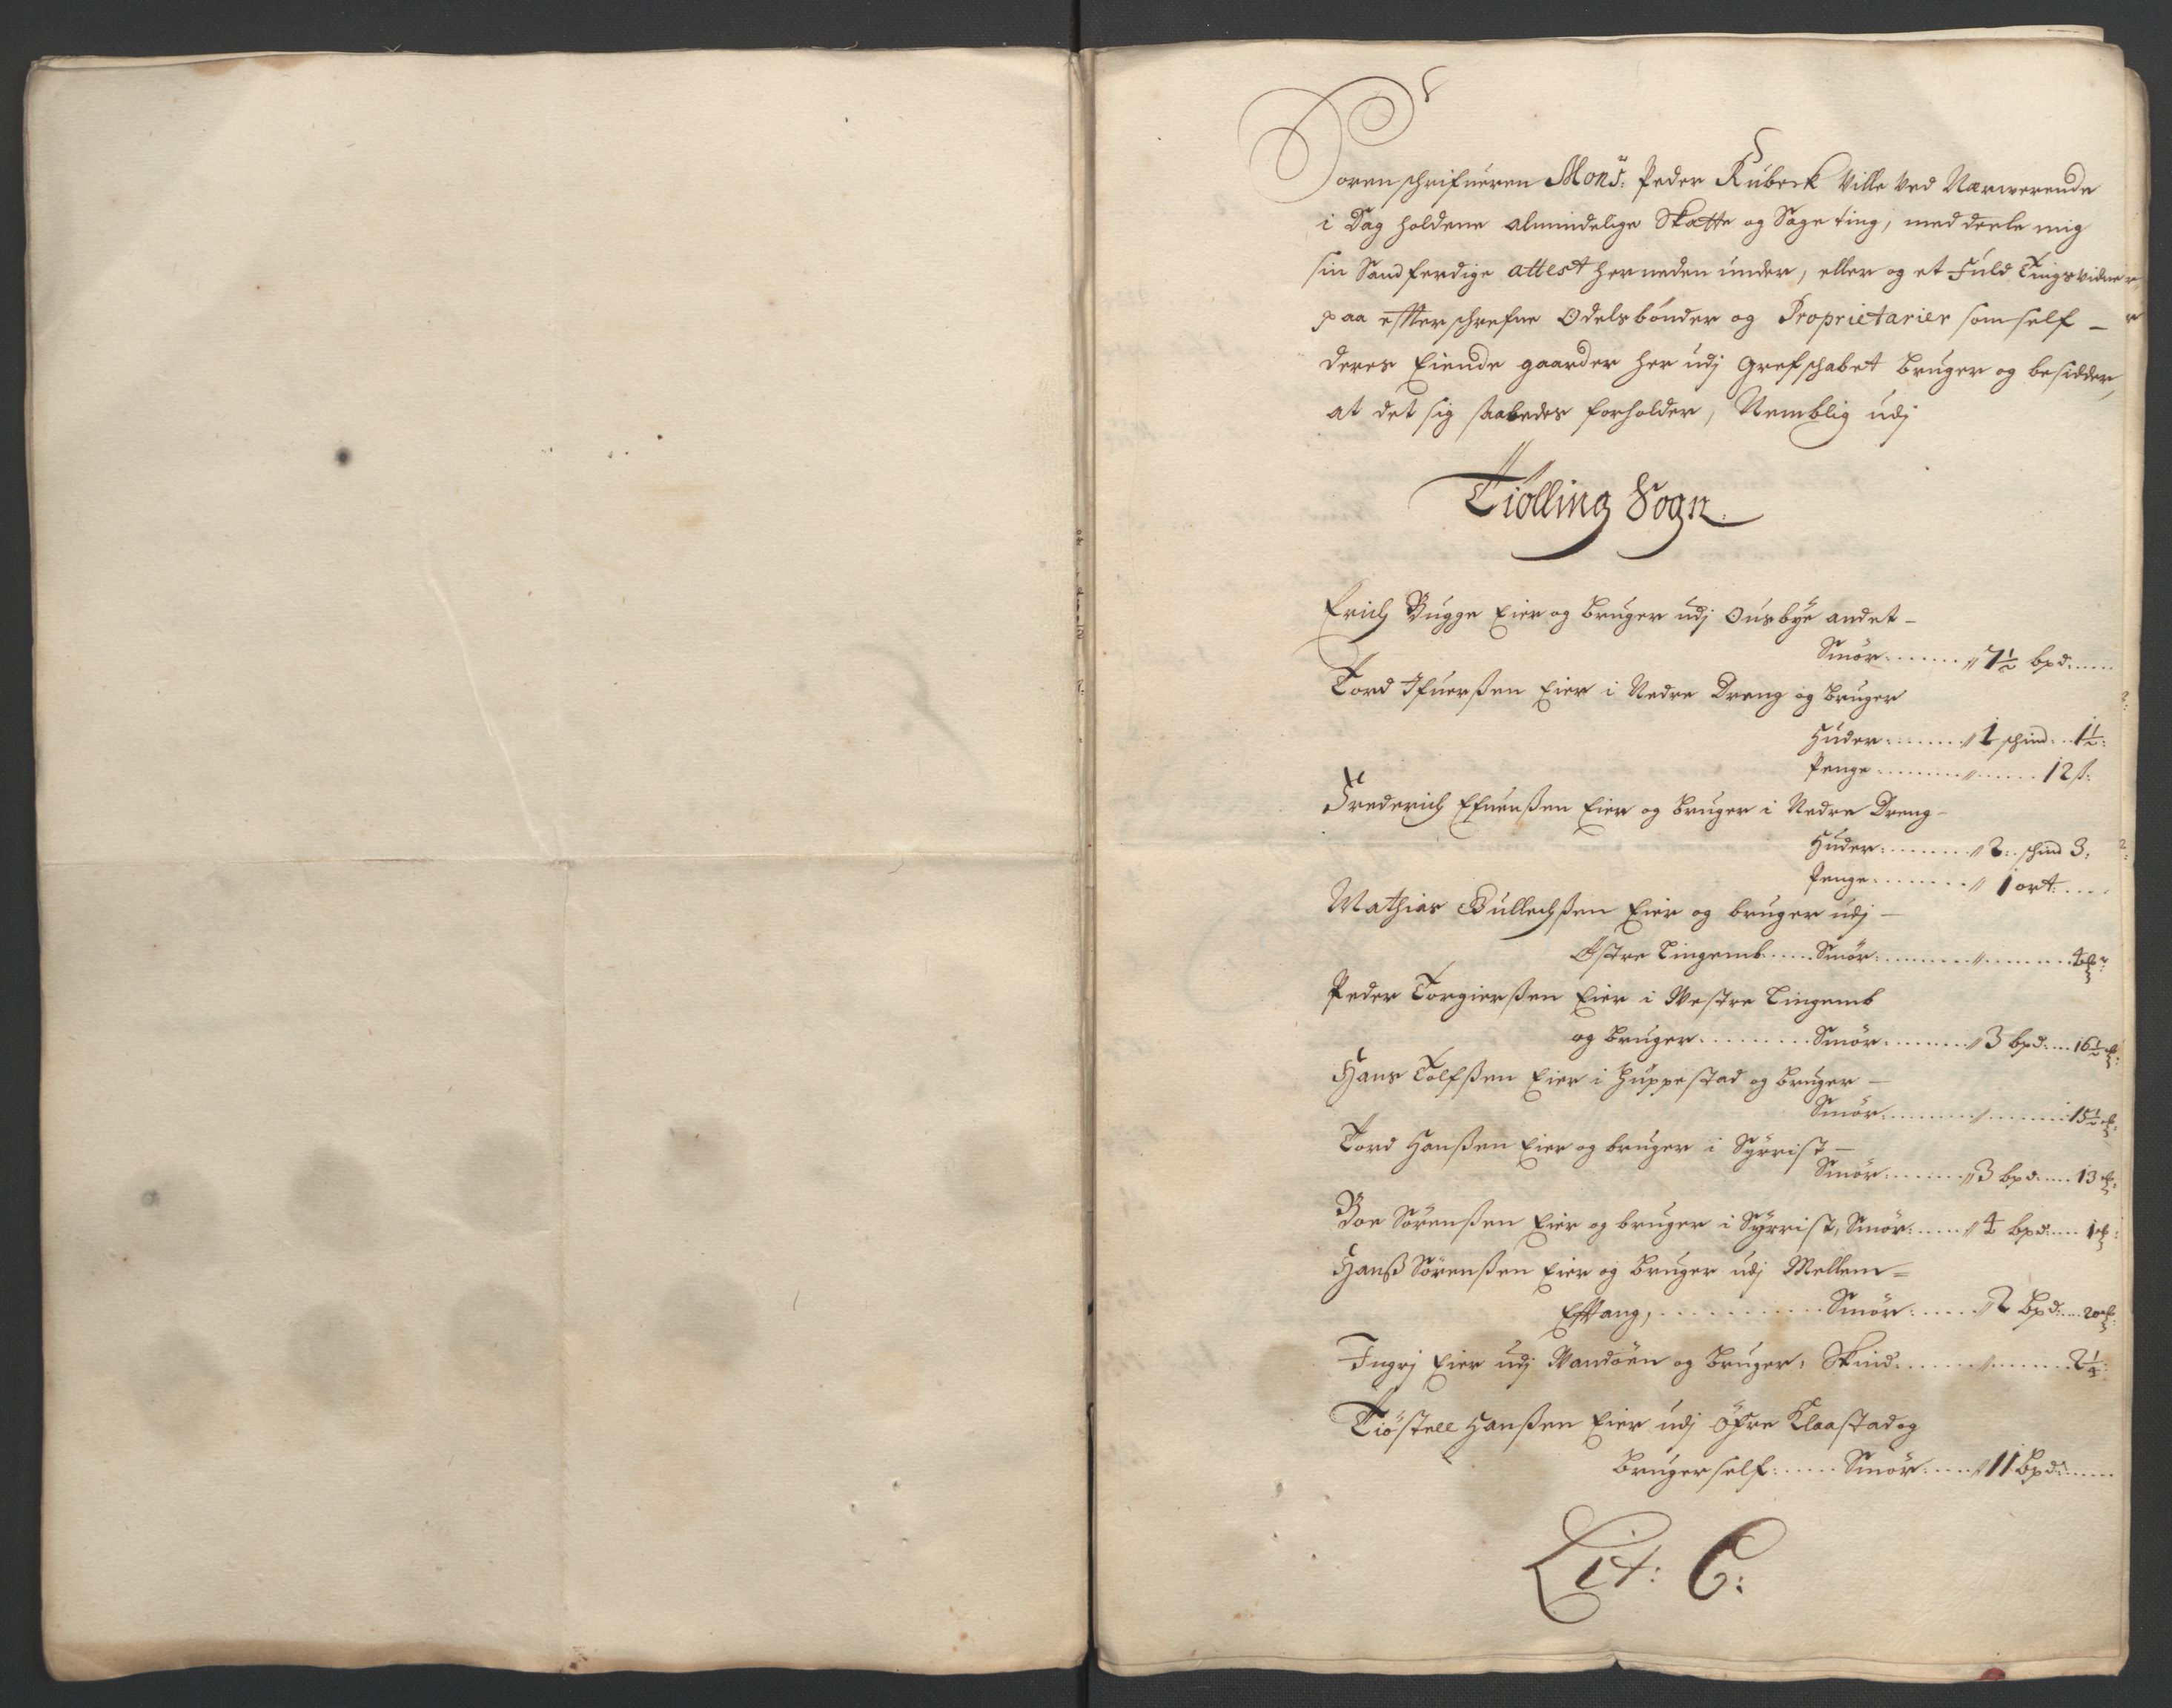 Sorenschrifueren Monsr: Peder Rúbeck Ville ved Nærwerende
i Dag holdene almindelige Skatte og Sage ting, meddeele mig
sin Sandferdige attest herneden under, eller og et Fuld Tingsvidne
paa effterschrefne Odelsbønder og Proprietarier som self -
deres Eiende gaarder her udj Grefschabet Bruger og besidder,
at det sig saaledes forholder, Nemblig udj
Tiølling Sogn.
Erich Bugge Eier og Bruger udj Ousbye andet -
Smør ....... 7½ bpd .....
Tord Ifuerßen Eier i Nedre Dreng og Bruger
Huder: ....... 1 schind: .. 1½:
Penge ........... 12 ß:
Frederich Efuenßen Eier og Bruger i Nedre Dreng -
Huder: ....... 2: schind 3:
Penge ........ 1 ort: ....
Mathias Bullechßen Eier og bruger udj -
Østre Lingumb ..... Smør: ...........
Peder Torgierßen Eier i Westre Lingumb
og Bruger ......... Smør ........ 3 bpd: ... 16½
Hans Tolfßen Eier i Huppestad og Bruger -
Smør ........... 15½
Tord Hanßen Eier og bruger i Syrrist -
Smør: ....... 3 bpd ..... 13
Boe Sørenßen Eier og bruger i Syrrist, Smør: ..... 4 bpd: .... 1
Hanß Sørenßen Eier og Bruger udj Mellem=
Efftang, ........... Smør: ...... 2 bpd: ... 20
Ingrj Eier udj Wandøen og Bruger, Skind .......... 2¼:
Tiøstell Hanßen Eier udj Øfre Klaastad og
Bruger self: ..... Smør: .... 11 Bpd: .....
Lit: C: